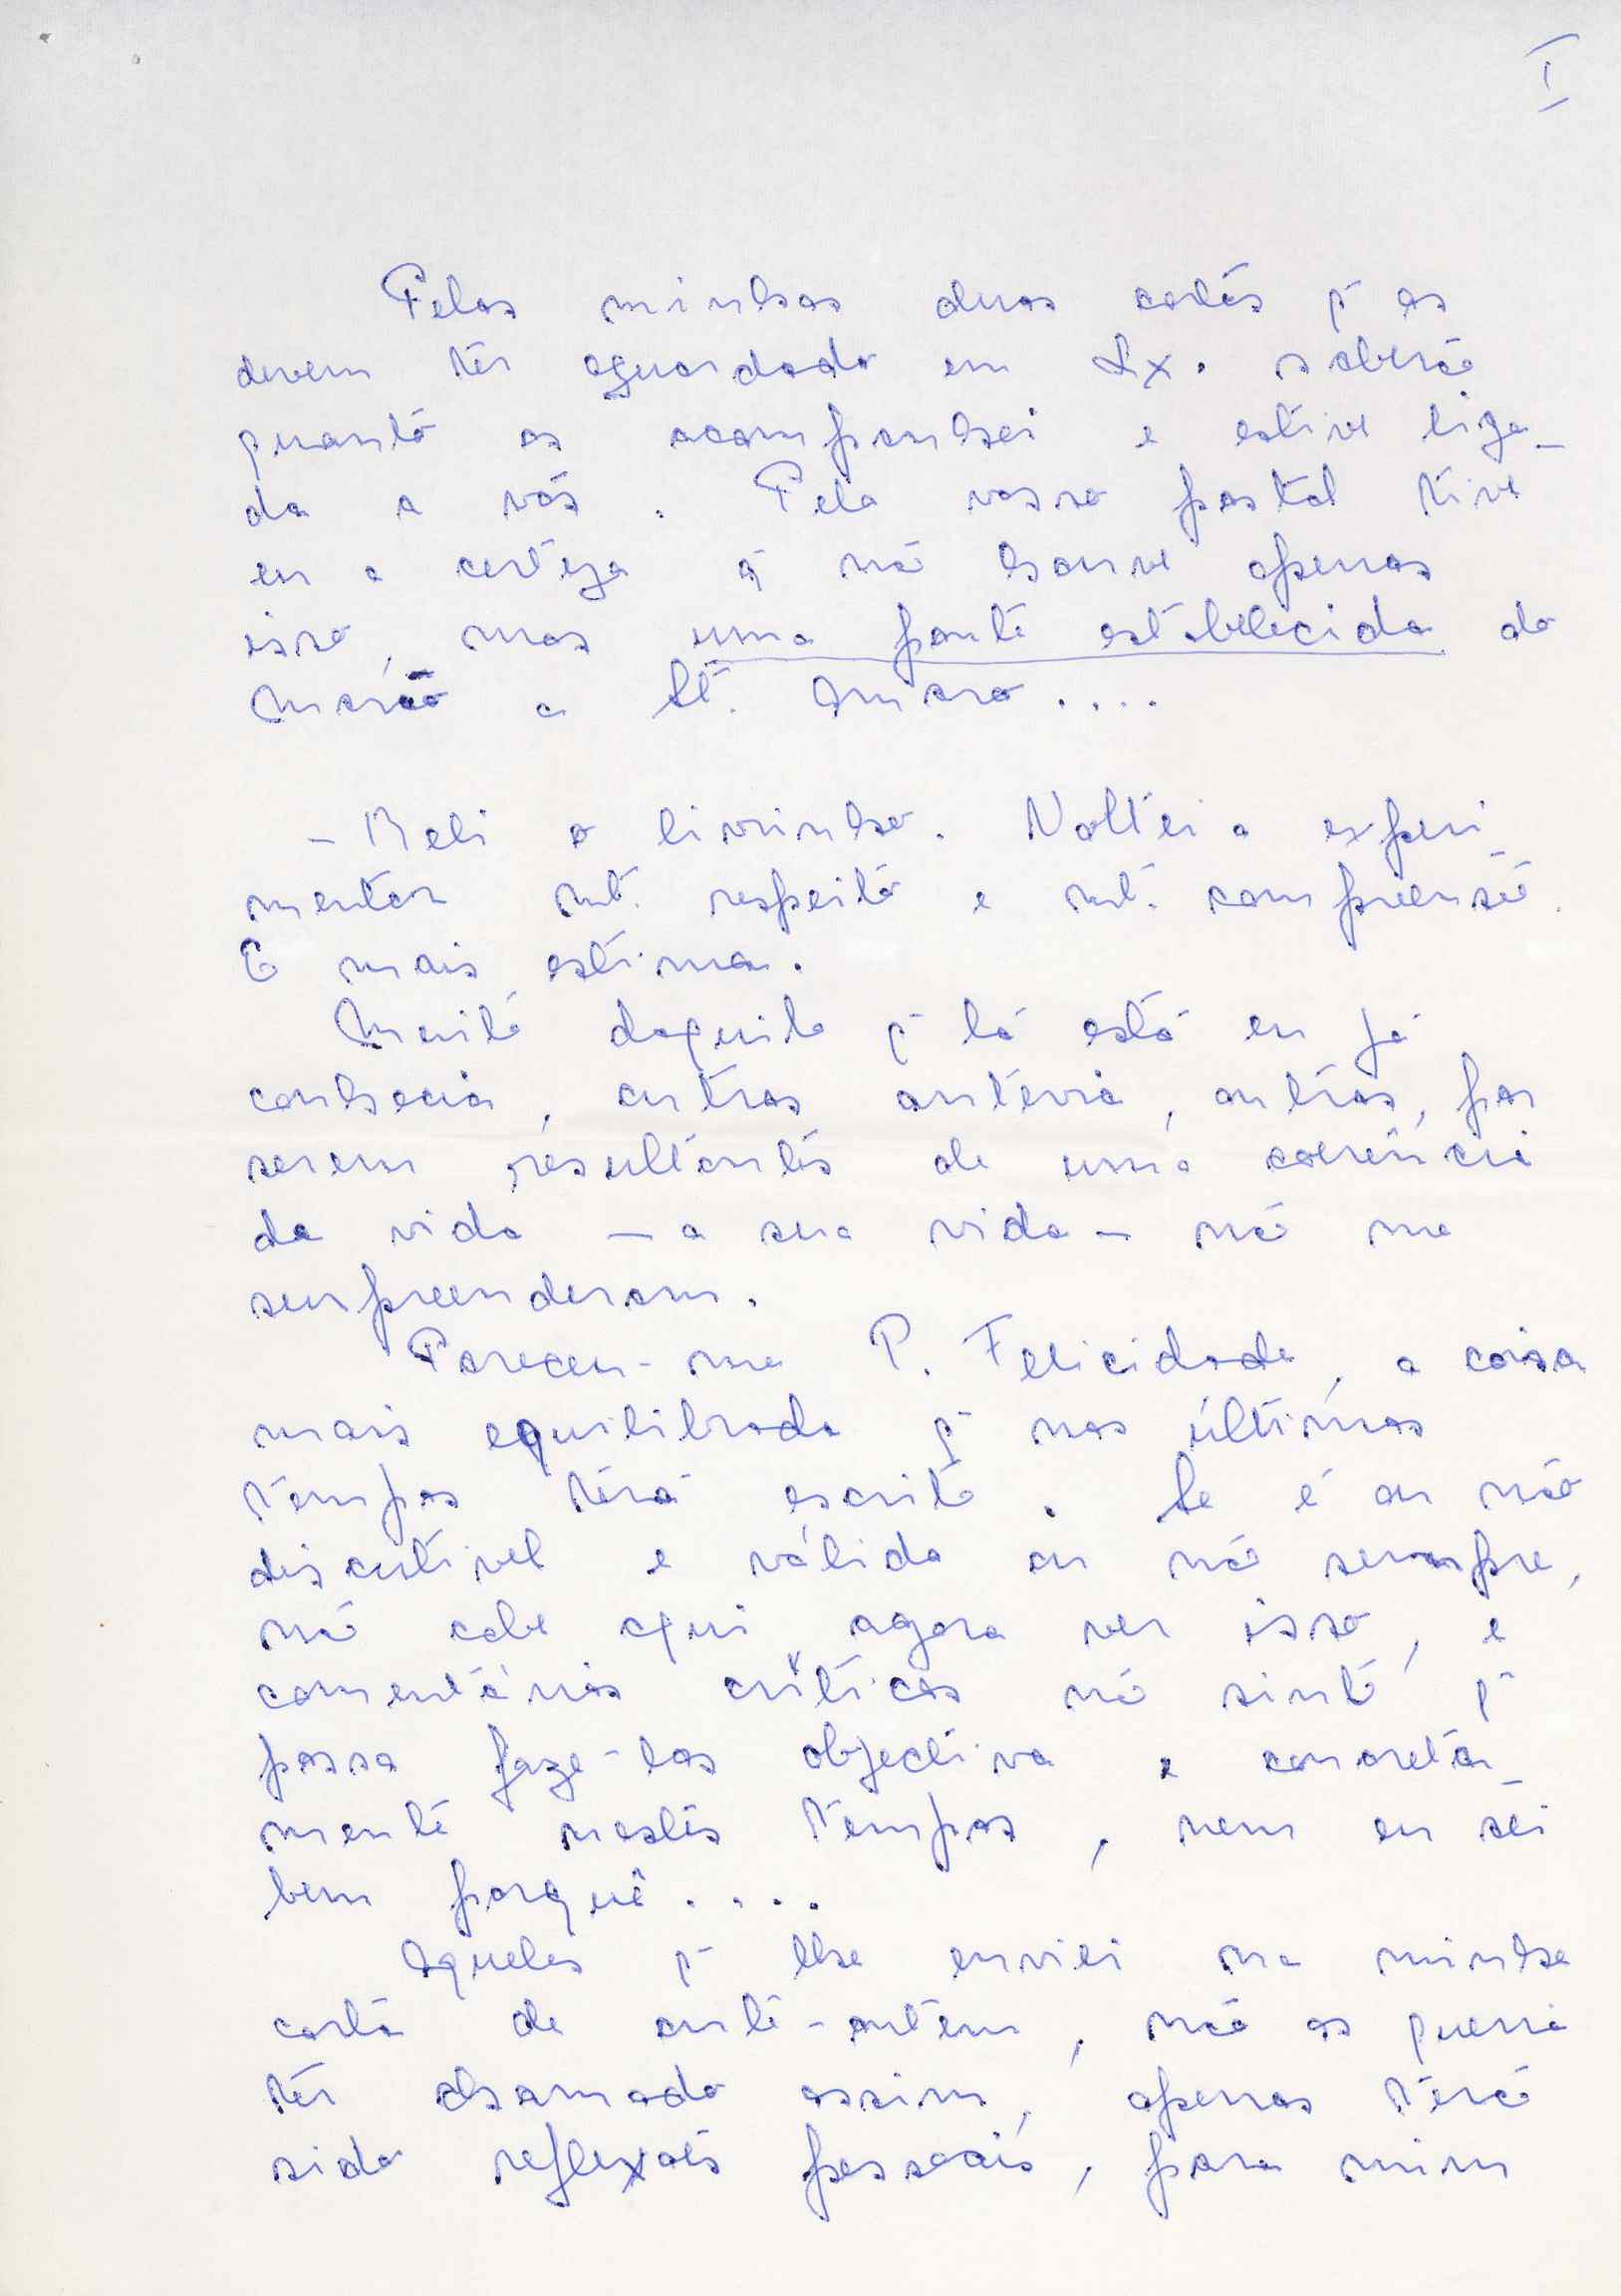 I
Pelas minhas duas cartas q̄ os
devem ter aguardado em Lx. saberão
quanto os acompanhei e estive liga-
da a vós. Pelo vosso postal tive
eu a certeza q̄ não houve apenas
isso, mas uma ponte estabelecida do
Marão a Stº. Amaro....
- Reli o livrinho. Voltei a experi
mentar mtº. respeito e mtª. compreensão.
E mais estima.
Muito daquilo q̄ lá está eu já
conhecia, outras antevia, outras, por
serem resultantes de uma coerência
da vida — a sua vida — não me
surpreenderam.
Pareceu-me P. Felicidade, a coisa
mais equilibrada q̄ nos últimos
tempos terá escrito. Se é ou não
discutível e válido ou não sempre,
não cabe aqui agora ver isso, e
comentários críticos não sinto q̄
possa faze-los objectiva e concreta-
mente nestes tempos, nem eu sei
bem porquê....
Aqueles q̄ lhe enviei na minha
carta de ante-ontem, não os queria
ter chamado assim, apenas terão
sido reflexões pessoais, para mim